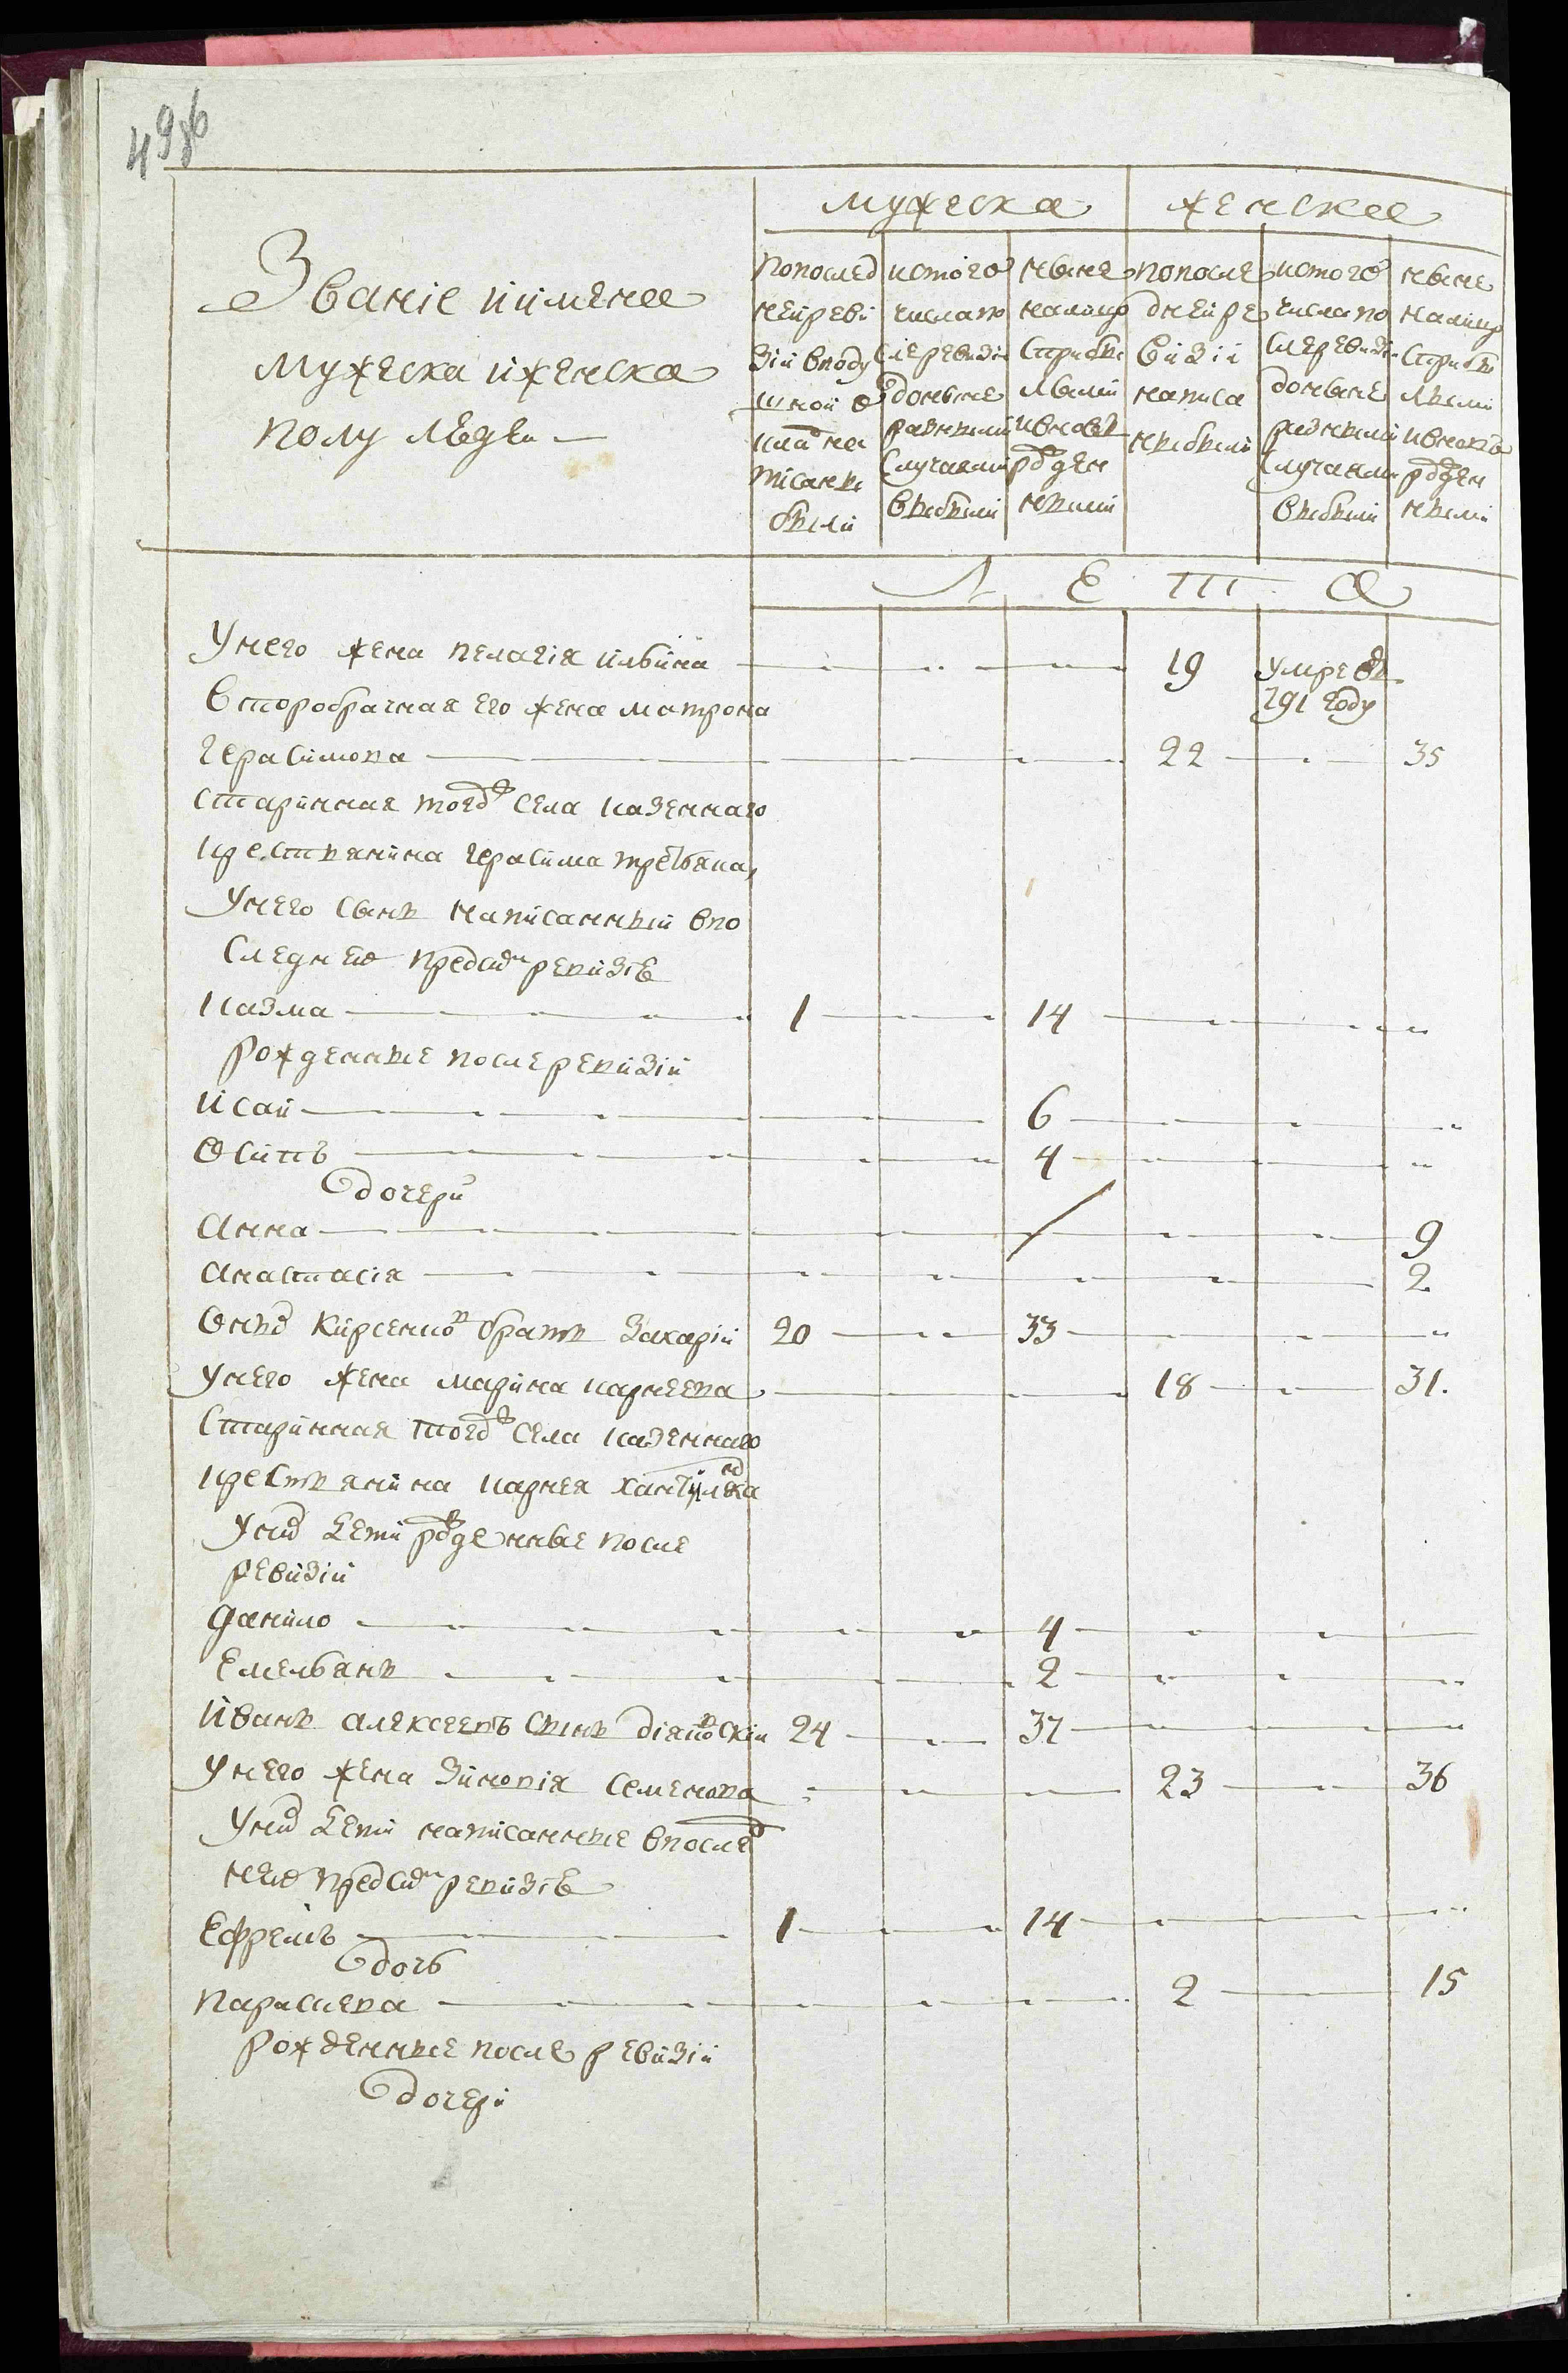 49об
мужеска женскаа
Званіе иименаа
мужеска иженска
полу людей
попослед нейреви зіи вподу шной о кладна писанны были
истого числапо слеревизіи доныне разными случаями выбыли
ныне налицо сприбы лыми ивновь рожден ными
попосле днейре визіи написа ныбыли
истого числапо слеревизіи доныне разными случаями выбыли
ныне налицо сприбы лыми ивновь рожден ными
Л е т а
Унего жена пелагія ильина 19 умре въ
791 году
Второбрачная его жена матрона
герасимова 22 35
старинная тоежъ села казеннаго
крестьянина герасима третьяка,
Унего сынъ написанный впо
следнею предсим ревизіе
Казма 1 14
рожденные послеревизіи
Исай 6
Осипъ 4
дочери
Анна 9
Анастасія 2
Онъ Кирсенковъ братъ Захарій 20 33
Унего жена марина карнеева 18 31.
Старинная тоежъ села казеннаго
крестьянина карнея
Уних дети рожденные после
ревизіи
Данило 4
Емельянъ 2
Иванъ алексеевъ сынъ діяковскій 24 37
Унего жена Зиновія семенова 23 36
Уних дети написанные впослед
нею предсим ревизіе
Ефремъ 1 14
дочь
Парасковя 2 15
рожденные после ревизіи
дочери